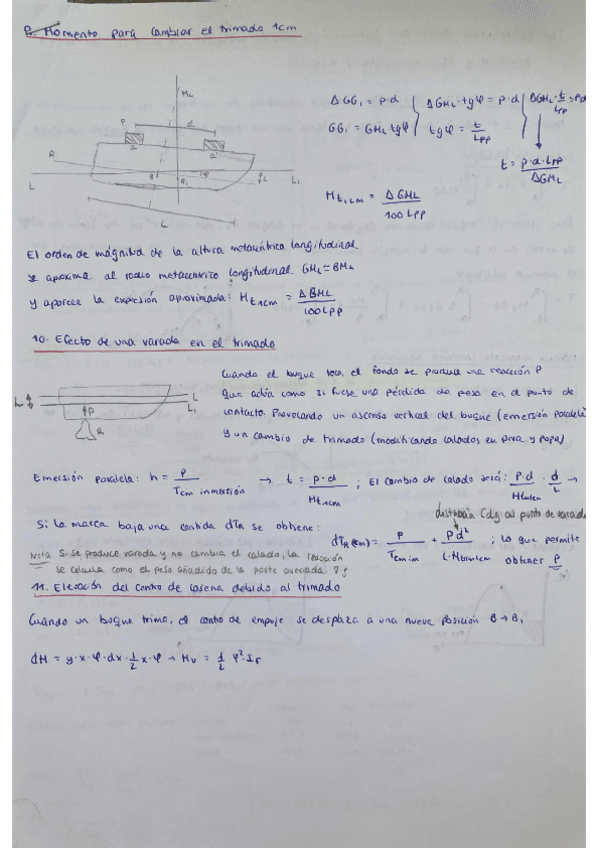 Momento para cambiar el trimado 1cm
ΔGG₁ = p·d
GG₁ = GML tgφ
ΔGML·tgφ = p·d
tgφ = t/LPP
ΔGML·t/LPP = p·d
t = p·d·LPP/ΔGML
Mt,cm = ΔGML/100LPP
El orden de magnitud de la altura metacéntrica longitudinal
se aproxima al radio metacéntrico longitudinal GML≃BML
y aparece la expresión aproximada: Mt1cm = ΔBML/100LPP
10. Efecto de una varada en el trimado
Cuando el buque toca el fondo se produce una reacción P
que actúa como si fuese una pérdida de peso en el punto de
contacto. Provocando un ascenso vertical del buque (emersión paralela)
y un cambio de trimado (modificando calados en proa y popa)
Emersión paralela: h = P/Tcm inmersión → t = p·d/Mt1cm ; El cambio de calado será: P·d/Mt1cm · d/L →
distancia Cdg al punto de varada
Si la marca baja una cantidad dTR se obtiene: dTR(cm) = P/Tcm im + Pd²/L·Mtrimcm ; lo que permite
obtener P
Nota Si se produce varada y no cambia el calado, la reacción
se calcula como el peso añadido de la parte averiada.
11. Elevación del centro de carena debido al trimado
Cuando un buque trima, el centro de empuje se desplaza a una nueva posición B→B₁
dM = y·x·φ·dx·1/2 x·φ → Mv = 1/2 φ²·IF